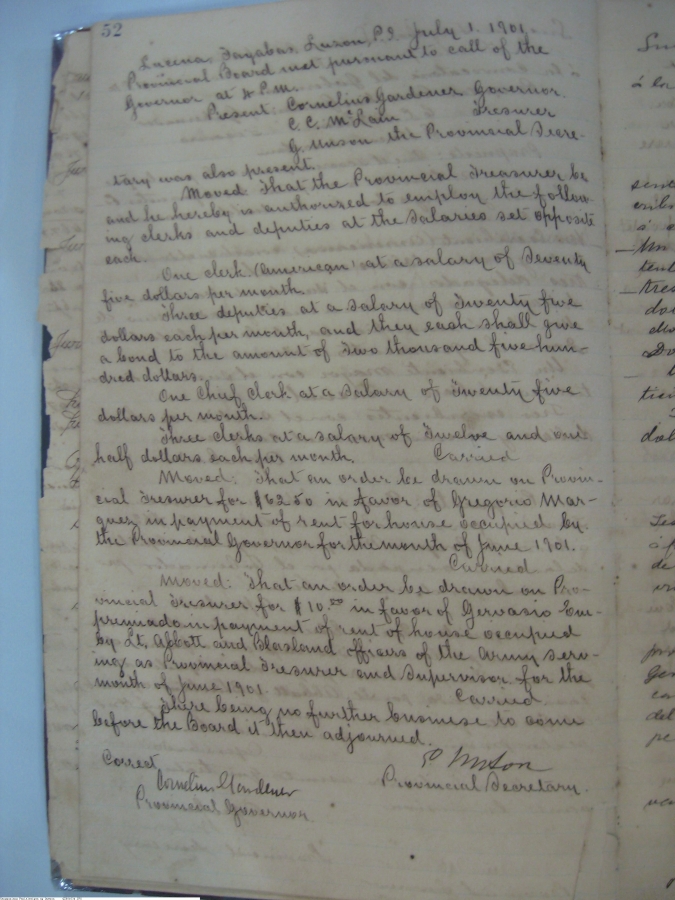 52
Lucena, Tayabas, Luzon, P.I. July 1. 1901.
Provincial Board met pursuant to call of the
Governor at 4 P.m.
Present: Cornelius Gardener Governor
C. C. McLain Tresurer
G. Unson the Provincial Secre-
tary was also present.
Moved That the Provincial Treasurer be
and he hereby is authorized to employ the follow-
ing clerks and deputies at the salaries set opposite
each.
One clerk (American) at a salary of Seventy
five dollars per month.
Three deputies at a salary of Twenty five
dollars each per month, and they each shall give
a bond to the amount of Two thousand five hun-
dred dollars.
One Chief Clerk at a salary of Twenty five
dollars per month.
Three clerks at a salary of Twelve and one
half dollars each per month. Carried
Moved: That an order be drawn on Provin-
cial Tresurer for $62.50 in favor of Gregorio Mar-
quez in payment of rent for house occupied by
the Provincial Governor for the month of June 1901.
Carried
Moved: That an order be drawn on Pro-
vincial Tresurer for $10.00 in favor of Gervasio Em-
premado in payment of rent of house occupied
by Lt. Abbott and Blasland officers of the Army serv-
ing as Provincial Tresurer and Supervisor for the
month of June 1901 Carried
There being no further business to come
before the Board it then adjourned.
Correct
G Unson
Cornelius Gardener
Provincial Secretary.
Provincial Governor